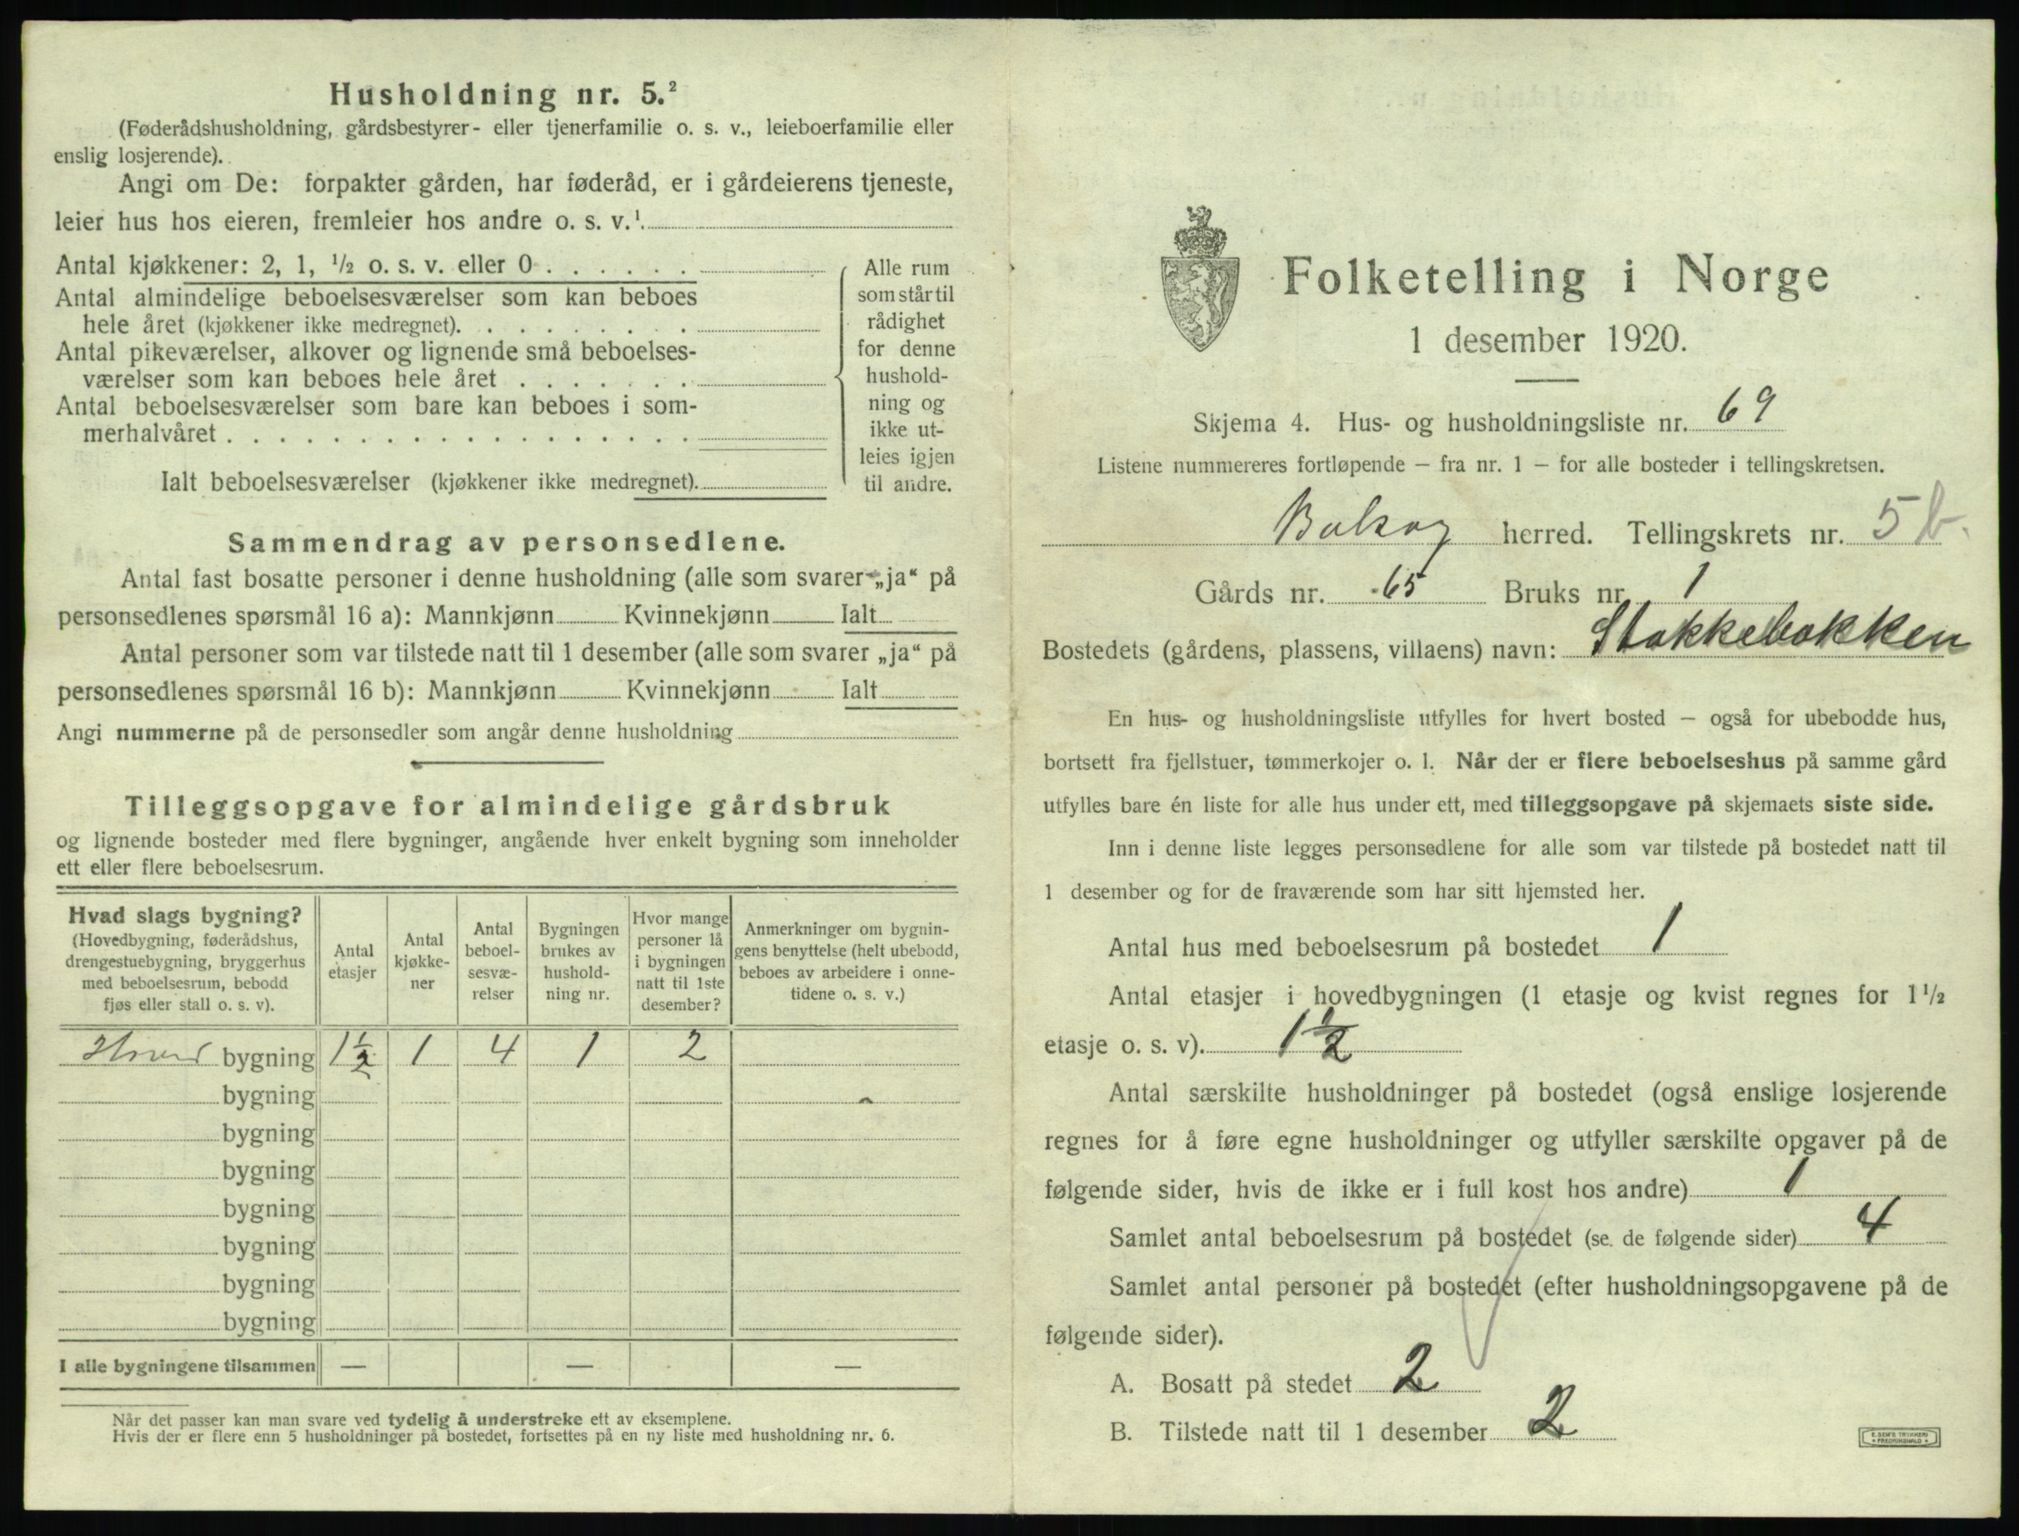 Husholdning nr. 5.²
(Føderådshusholdning, gårdsbestyrer- eller tjenerfamilie o. s. v., leieboerfamilie eller
enslig losjerende).
Angi om De: forpakter gården, har føderåd, er i gårdeierens tjeneste,
leier hus hos eieren, fremleier hos andre o. s. v.¹
Antal kjøkkener: 2, 1, ½ o. s. v. eller 0
Antal almindelige beboelsesværelser som kan beboes
hele året (kjøkkener ikke medregnet).
Antal pikeværelser, alkover og lignende små beboelses-
værelser som kan beboes hele året
Antal beboelsesværelser som bare kan beboes i som-
merhalvåret
Ialt beboelsesværelser (kjøkkener ikke medregnet).
Alle rum
som står til
rådighet
for denne
hushold-
ning og
ikke ut-
leies igjen
til andre.
Sammendrag av personsedlene.
Antal fast bosatte personer i denne husholdning (alle som svarer „ja“ på
personsedlenes spørsmål 16 a): Mannkjønn Kvinnekjønn Ialt
Antal personer som var tilstede natt til 1 desember (alle som svarer „ja“ på
personsedlenes spørsmål 16 b): Mannkjønn Kvinnekjønn Ialt
Angi nummerne på de personsedler som angår denne husholdning
Tilleggsopgave for almindelige gårdsbruk
og lignende bosteder med flere bygninger, angående hver enkelt bygning som inneholder
ett eller flere beboelsesrum.
Hvad slags bygning?
(Hovedbygning, føderådshus,
drengestuebygning, bryggerhus
med beboelsesrum, bebodd
fjøs eller stall o. s. v).
Antal
etasjer
Antal
kjøkke-
ner
Antal
beboel-
sesvæ-
relser
Bygningen
brukes av
hushold-
ning nr.
Hvor mange
personer lå
i bygningen
natt til 1ste
desember?
Anmerkninger om bygnin-
gens benyttelse (helt ubebodd,
beboes av arbeidere i onne-
tidene o. s. v.)
Hoved bygning 1½ 1 4 1 2
bygning
bygning
bygning
bygning
bygning
bygning
bygning
I alle bygningene tilsammen — — —
Når det passer kan man svare ved tydelig å understreke ett av eksemplene.
Hvis der er flere enn 5 husholdninger på bostedet, fortsettes på en ny liste med husholdning nr. 6.
Folketelling i Norge
1 desember 1920.
Skjema 4. Hus- og husholdningsliste nr. 69
Listene nummereres fortløpende — fra nr. 1 — for alle bosteder i tellingskretsen.
Bolsøy herred. Tellingskrets nr. 5 b.
Gårds nr. 65 Bruks nr. 1
Bostedets (gårdens, plassens, villaens) navn: Stokkebakken
En hus- og husholdningsliste utfylles for hvert bosted — også for ubebodde hus,
bortsett fra fjellstuer, tømmerkojer o. l. Når der er flere beboelseshus på samme gård
utfylles bare én liste for alle hus under ett, med tilleggsopgave på skjemaets siste side.
Inn i denne liste legges personsedlene for alle som var tilstede på bostedet natt til
1 desember og for de fraværende som har sitt hjemsted her.
Antal hus med beboelsesrum på bostedet 1
Antal etasjer i hovedbygningen (1 etasje og kvist regnes for 1½
etasje o. s. v). 1½
Antal særskilte husholdninger på bostedet (også enslige losjerende
regnes for å føre egne husholdninger og utfyller særskilte opgaver på de
følgende sider, hvis de ikke er i full kost hos andre) 1
Samlet antal beboelsesrum på bostedet (se de følgende sider) 4
Samlet antal personer på bostedet (efter husholdningsopgavene på de
følgende sider).
A. Bosatt på stedet 2
B. Tilstede natt til 1 desember 2